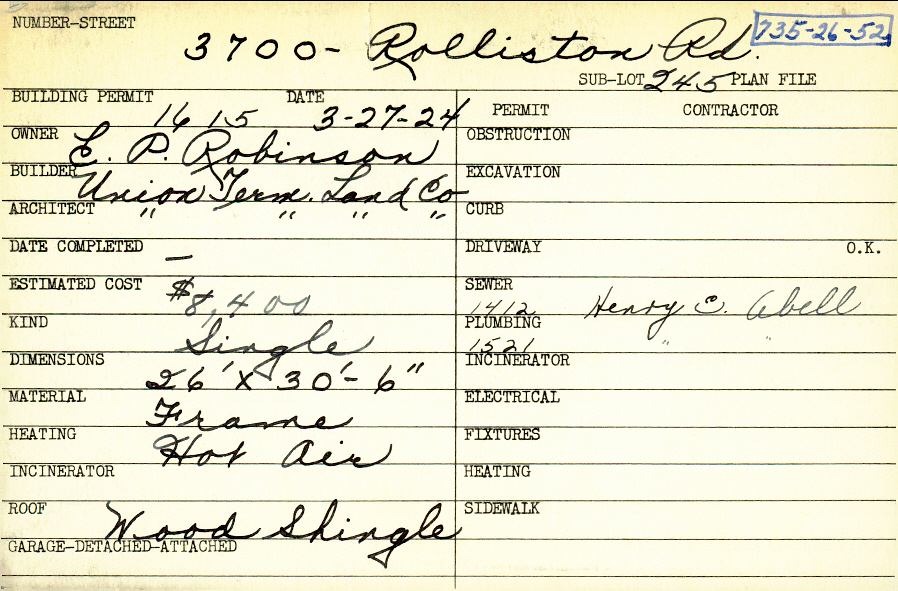 NUMBER-STREET
3700- Rolliston Rd. 735-26-52
SUB-LOT 245 PLAN FILE
BUILDING PERMIT 1615 DATE 3-27-24
OWNER E. P. Robinson
BUILDER Union Term. Land Co
ARCHITECT " " " "
DATE COMPLETED —
ESTIMATED COST $8,400
KIND Single
DIMENSIONS 26' X 30'-6"
MATERIAL Frame
HEATING Hot Air
INCINERATOR
ROOF Wood Shingle
GARAGE-DETACHED-ATTACHED
PERMIT CONTRACTOR
OBSTRUCTION
EXCAVATION
CURB
DRIVEWAY O.K.
SEWER 1412 Henry C. Abell
PLUMBING 1521 " "
INCINERATOR
ELECTRICAL
FIXTURES
HEATING
SIDEWALK